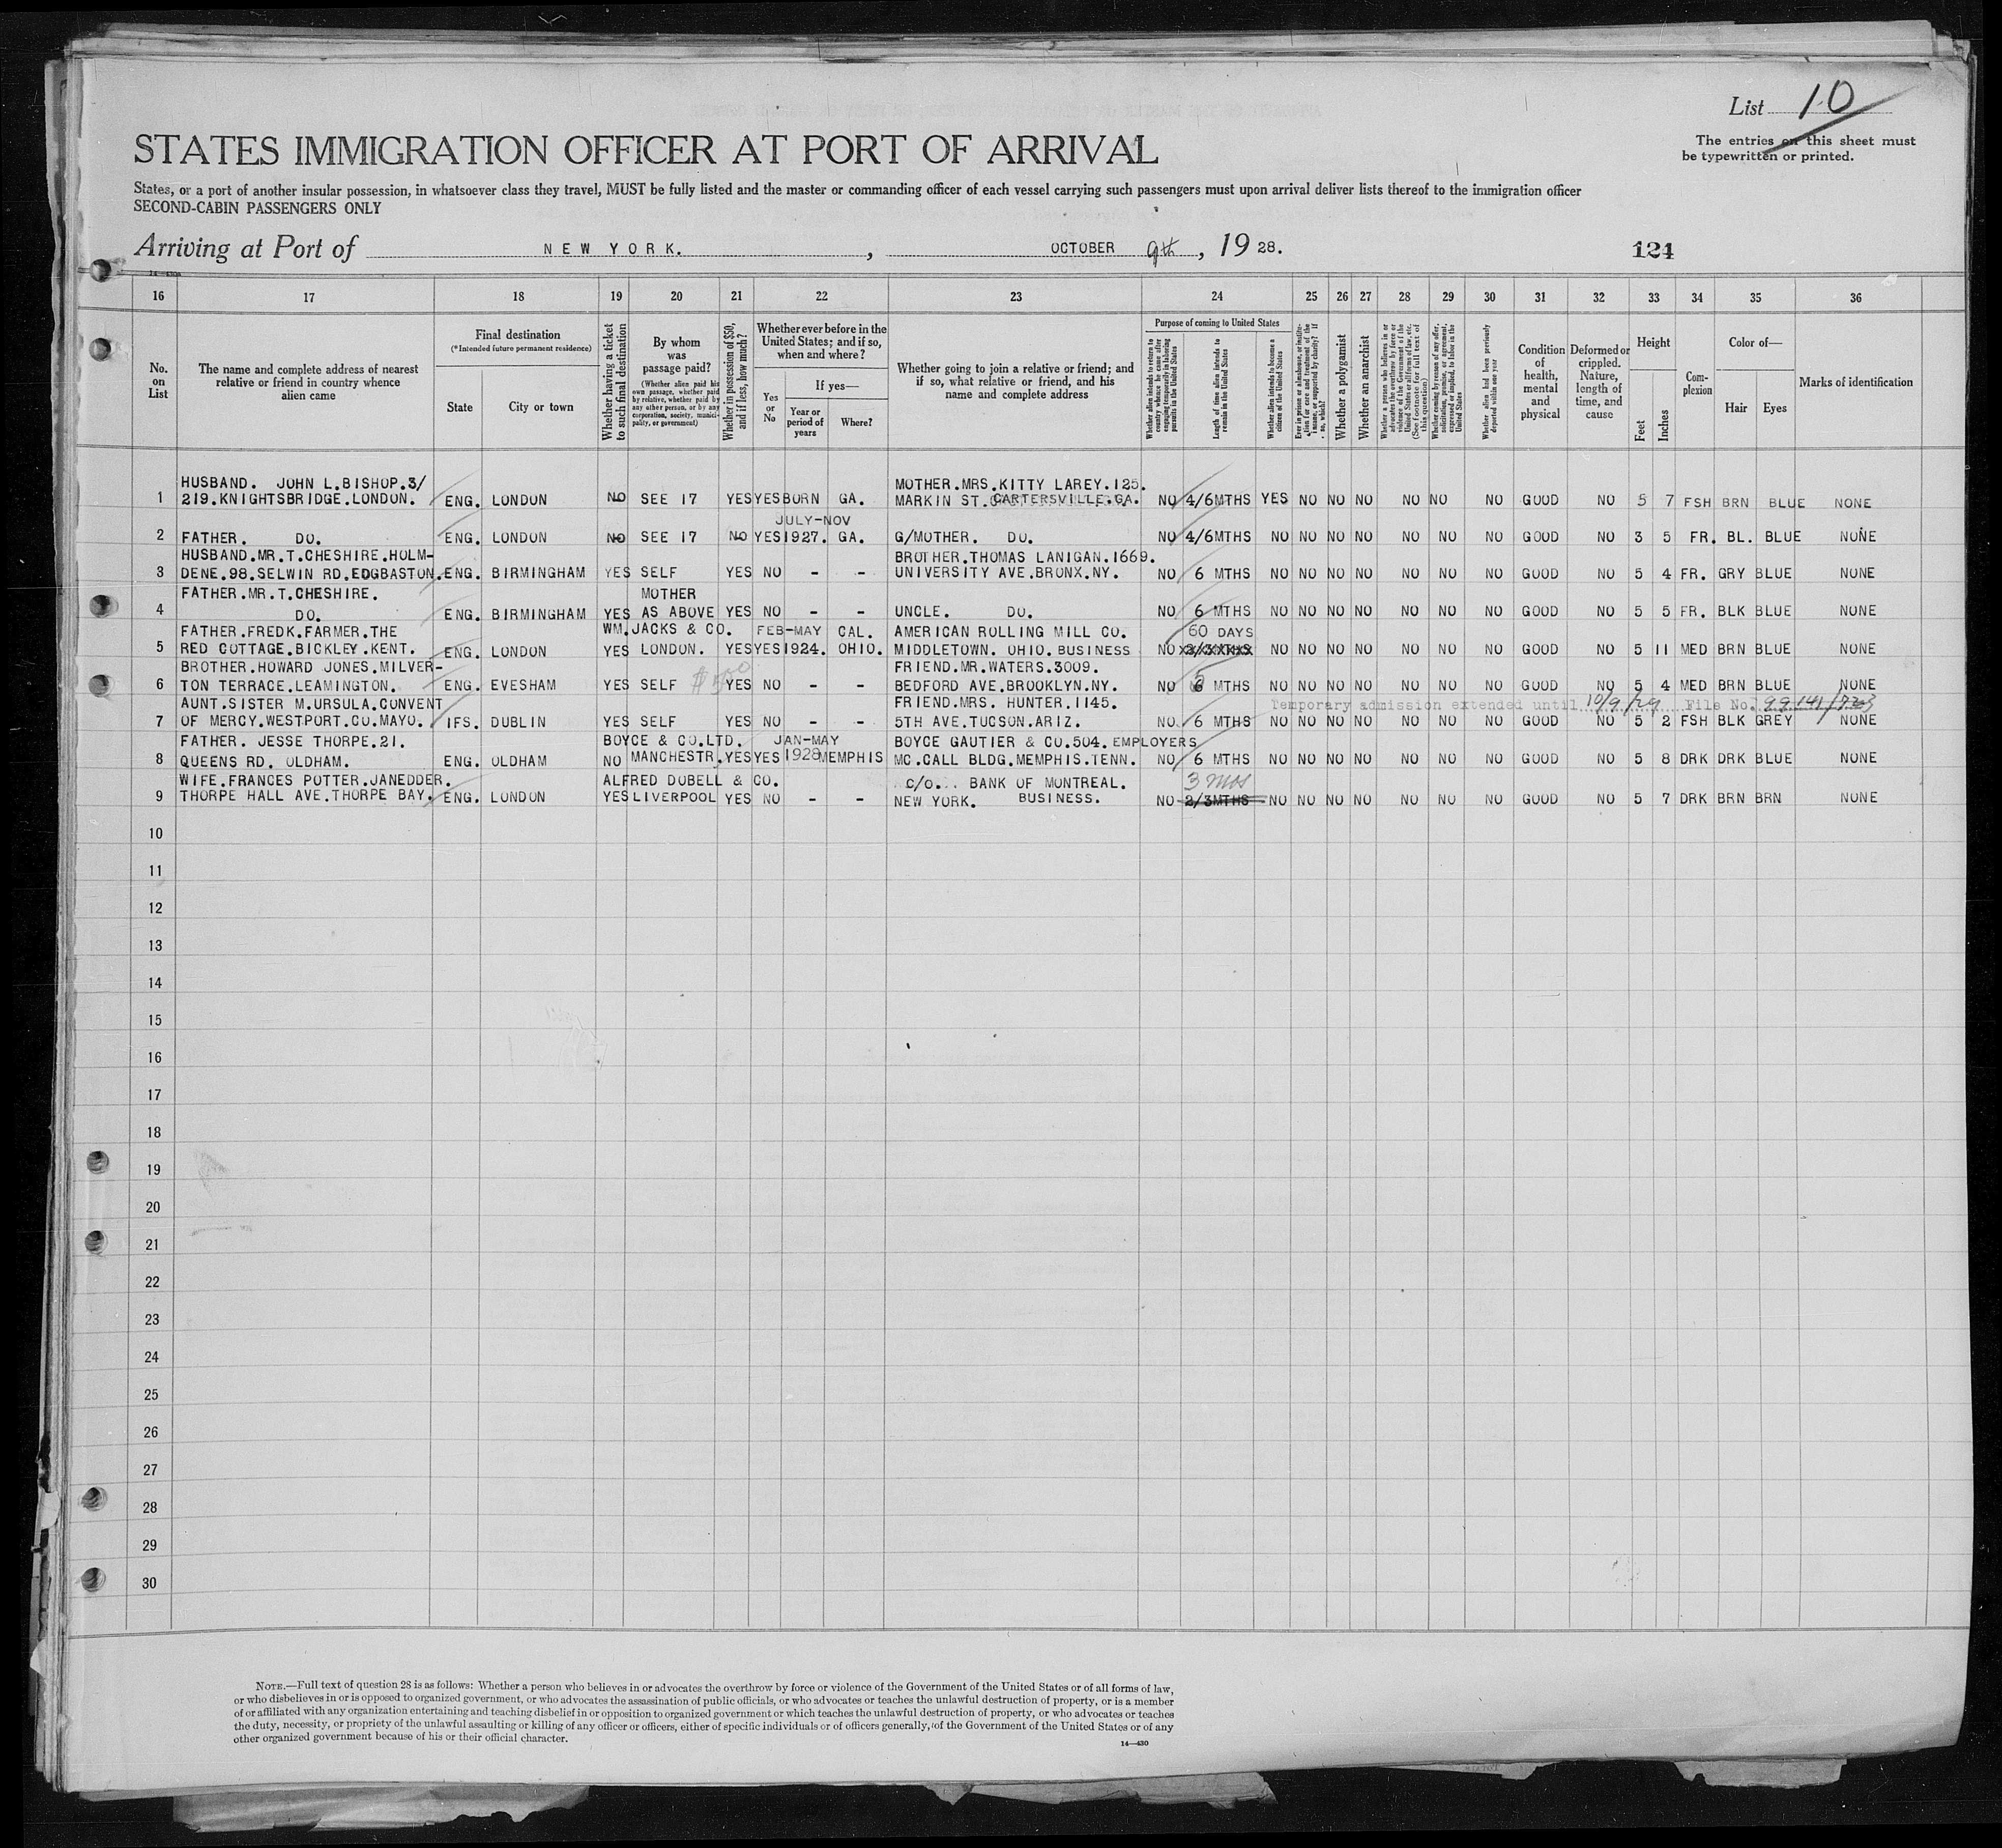 List 10
The entries on this sheet must
be typewritten or printed.
STATES IMMIGRATION OFFICER AT PORT OF ARRIVAL
States, or a port of another insular possession, in whatsoever class they travel, MUST be fully listed and the master or commanding officer of each vessel carrying such passengers must upon arrival deliver lists thereof to the immigration officer
SECOND-CABIN PASSENGERS ONLY
Arriving at Port of NEW YORK. , OCTOBER 9th , 19 28. 124
16 17 18 19 20 21 22 23 24 25 26 27 28 29 30 31 32 33 34 35 36
No. on List
The name and complete address of nearest relative or friend in country whence alien came
Final destination
(*Intended future permanent residence)
State
City or town
Whether having a ticket to such final destination
By whom was passage paid?
(Whether alien paid his own passage, whether paid by relative, whether paid by any other person, or by any corporation, society, municipality, or government)
Whether in possession of $50, and if less, how much?
Whether ever before in the United States; and if so, when and where?
Yes or No
If yes—
Year or period of years
Where?
Whether going to join a relative or friend; and if so, what relative or friend, and his name and complete address
Purpose of coming to United States
Whether alien intends to return to country whence he came after engaging temporarily in laboring pursuits in the United States
Length of time alien intends to remain in the United States
Whether alien intends to become a citizen of the United States
Whether a polygamist
Whether an anarchist
Whether alien had been previously deported within one year
Condition of health, mental and physical
Deformed or crippled. Nature, length of time, and cause
Height
Feet
Inches
Complexion
Color of—
Hair
Eyes
Marks of identification
HUSBAND. JOHN L.BISHOP.3/ MOTHER.MRS.KITTY LAREY.125.
1 219.KNIGHTSBRIDGE.LONDON. ENG. LONDON NO SEE 17 YES YES BORN GA. MARKIN ST.CARTERSVILLE.GA. NO 4/6MTHS YES NO NO NO NO NO NO GOOD NO 5 7 FSH BRN BLUE NONE
JULY-NOV
2 FATHER. DO. ENG. LONDON NO SEE 17 NO YES 1927. GA. G/MOTHER. DO. NO 4/6MTHS NO NO NO NO NO NO NO GOOD NO 3 5 FR. BL. BLUE NONE
HUSBAND.MR.T.CHESHIRE.HOLM- BROTHER.THOMAS LANIGAN.1669.
3 DENE.98.SELWIN RD.EDGBASTON. ENG. BIRMINGHAM YES SELF YES NO - - UNIVERSITY AVE.BRONX.NY. NO 6 MTHS NO NO NO NO NO NO NO GOOD NO 5 4 FR. GRY BLUE NONE
FATHER.MR.T.CHESHIRE. MOTHER
4 DO. ENG. BIRMINGHAM YES AS ABOVE YES NO - - UNCLE. DO. NO 6 MTHS NO NO NO NO NO NO NO GOOD NO 5 5 FR. BLK BLUE NONE
FATHER.FREDK.FARMER.THE WM.JACKS & CO. FEB-MAY CAL. AMERICAN ROLLING MILL CO. 60 DAYS
5 RED COTTAGE.BICKLEY.KENT. ENG. LONDON YES LONDON. YES YES 1924. OHIO. MIDDLETOWN. OHIO. BUSINESS NO NO NO NO NO NO NO NO GOOD NO 5 11 MED BRN BLUE NONE
BROTHER.HOWARD JONES.MILVER- FRIEND.MR.WATERS.3009. 5
6 TON TERRACE.LEAMINGTON. ENG. EVESHAM YES SELF YES NO - - BEDFORD AVE.BROOKLYN.NY. NO 6 MTHS NO NO NO NO NO NO NO GOOD NO 5 4 MED BRN BLUE NONE
AUNT.SISTER M.URSULA.CONVENT FRIEND.MRS. HUNTER.1145. Temporary admission extended until 10/9/29 File No.
7 OF MERCY.WESTPORT.CO.MAYO. IFS. DUBLIN YES SELF YES NO - - 5TH AVE.TUCSON.ARIZ. NO 6 MTHS NO NO NO NO NO NO NO GOOD NO 5 2 FSH BLK GREY NONE
FATHER. JESSE THORPE.21. BOYCE & CO.LTD. JAN-MAY BOYCE GAUTIER & CO.504. EMPLOYERS
8 QUEENS RD. OLDHAM. ENG. OLDHAM NO MANCHESTR. YES YES 1928 MEMPHIS MC.CALL BLDG.MEMPHIS.TENN. NO 6 MTHS NO NO NO NO NO NO NO GOOD NO 5 8 DRK DRK BLUE NONE
WIFE.FRANCES POTTER.JANEDDER. ALFRED DOBELL & CO. c/o... BANK OF MONTREAL. 3 mos
9 THORPE HALL AVE.THORPE BAY. ENG. LONDON YES LIVERPOOL YES NO - - NEW YORK. BUSINESS. NO 2/3MTHS NO NO NO NO NO NO NO GOOD NO 5 7 DRK BRN BRN NONE
10
11
12
13
14
15
16
17
18
19
20
21
22
23
24
25
26
27
28
29
30
NOTE.—Full text of question 28 is as follows: Whether a person who believes in or advocates the overthrow by force or violence of the Government of the United States or of all forms of law,
or who disbelieves in or is opposed to organized government, or who advocates the assassination of public officials, or who advocates or teaches the unlawful destruction of property, or is a member
of or affiliated with any organization entertaining and teaching disbelief in or opposition to organized government or which teaches the unlawful destruction of property, or who advocates or teaches
the duty, necessity, or propriety of the unlawful assaulting or killing of any officer or officers, either of specific individuals or of officers generally, of the Government of the United States or of any
other organized government because of his or their official character.
14—430